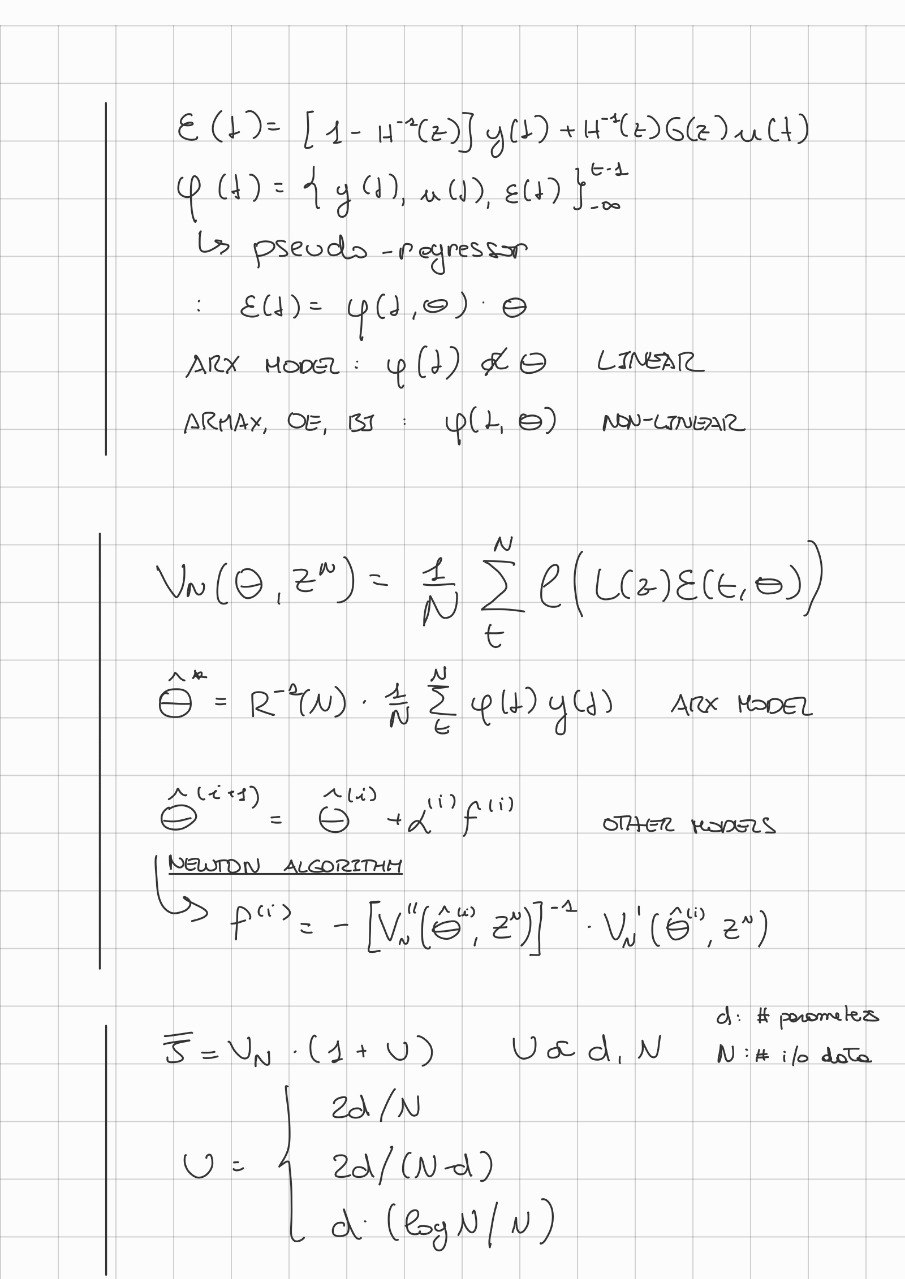 ε(t) = [1 - H⁻¹(z)] y(t) + H⁻¹(z) G(z) u(t)
φ(t) = { y(t), u(t), ε(t) }_{-∞}^{t-1}
↳ pseudo-regressor
: ε(t) = φ(t, θ) · θ
ARX MODEL : φ(t) ∝̸ θ LINEAR
ARMAX, OE, BJ : φ(t, θ) NON-LINEAR
V_N(θ, z^N) = 1/N Σ_t^N ℓ(L(z) ε(t, θ))
θ̂* = R⁻¹(N) · 1/N Σ_t^N φ(t) y(t) ARX MODEL
θ̂^(i+1) = θ̂^(i) + α^(i) f^(i) OTHER MODELS
NEWTON ALGORITHM
↳ f^(i) = - [V_N''(θ̂^(i), z^N)]⁻¹ · V_N'(θ̂^(i), z^N)
d: # parameters
J̄ = V_N · (1 + U) U ∝ d, N N : # i/o data
U = { 2d/N
2d/(N-d)
d · (log N / N)